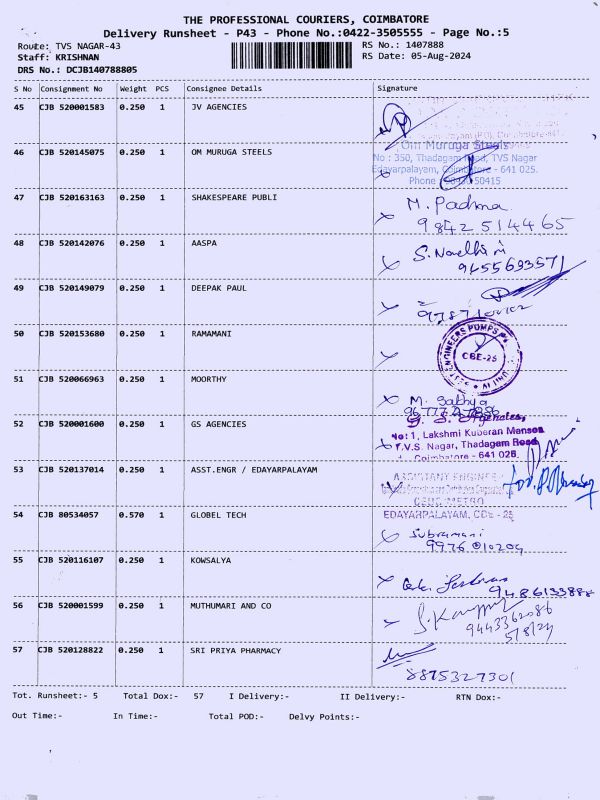 THE PROFESSIONAL COURIERS, COIMBATORE
Delivery Runsheet - P43 - Phone No.:0422-3505555 - Page No.:5
Route: TVS NAGAR-43
RS No.: 1407888
Staff: KRISHNAN
RS Date: 05-Aug-2024
DRS No.: DCJB140788805
S No Consignment No Weight PCS Consignee Details Signature
45 CJB 520001583 0.250 1 JV AGENCIES
46 CJB 520145075 0.250 1 OM MURUGA STEELS
Om Muruga Steels
No : 350, Thadagam Road, TVS Nagar
Edayarpalayam, Coimbatore - 641 025.
Phone 50415
47 CJB 520163163 0.250 1 SHAKESPEARE PUBLI
M. Padma
9842514465
48 CJB 520142076 0.250 1 AASPA
9455693571
49 CJB 520149079 0.250 1 DEEPAK PAUL
50 CJB 520153680 0.250 1 RAMAMANI
ENGINEERS PUMPS
CBE-25
51 CJB 520066963 0.250 1 MOORTHY
M. Sathya
52 CJB 520001600 0.250 1 GS AGENCIES
G. S. Agencies,
No: 1, Lakshmi Kuberan Mansea
T.V.S. Nagar, Thadagam Road
Coimbatore - 641 025.
53 CJB 520137014 0.250 1 ASST.ENGR / EDAYARPALAYAM
ASSISTANT ENGINEER
EDAYARPALAYAM, CBE - 25
54 CJB 80534057 0.570 1 GLOBEL TECH
Subramani
9976010209
55 CJB 520116107 0.250 1 KOWSALYA
9486133888
56 CJB 520001599 0.250 1 MUTHUMARI AND CO
9443362086
5/8/24
57 CJB 520128822 0.250 1 SRI PRIYA PHARMACY
8875327301
Tot. Runsheet:- 5 Total Dox:- 57 I Delivery:- II Delivery:- RTN Dox:-
Out Time:- In Time:- Total POD:- Delvy Points:-